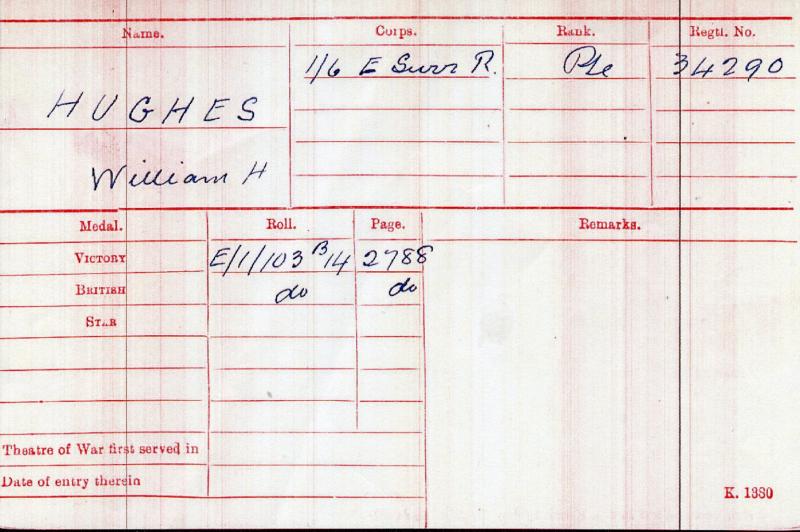 Name. Corps. Rank. Regtl. No.
1/6 E Surr R. Pte 34290
HUGHES
William H
Medal. Roll. Page. Remarks.
VICTORY E/1/103 B14 2788
BRITISH do do
STAR
Theatre of War first served in
Date of entry therein
K. 1380